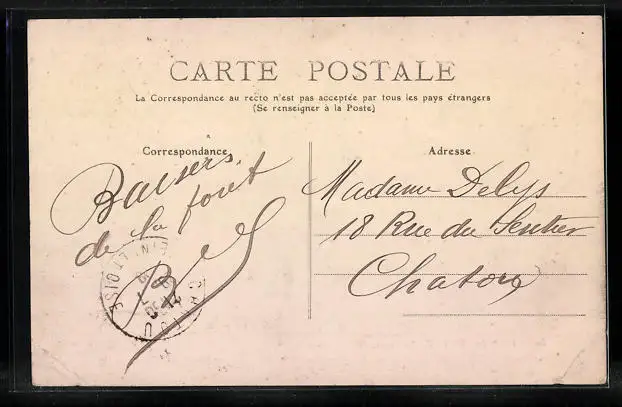 CARTE POSTALE
La Correspondance au recto n'est pas acceptée par tous les pays étrangers
(Se renseigner à la Poste)
Correspondance
Adresse
Baisers
de la foret
Madame Delys
18 Rue du Sentier
Chatou
CHATOU